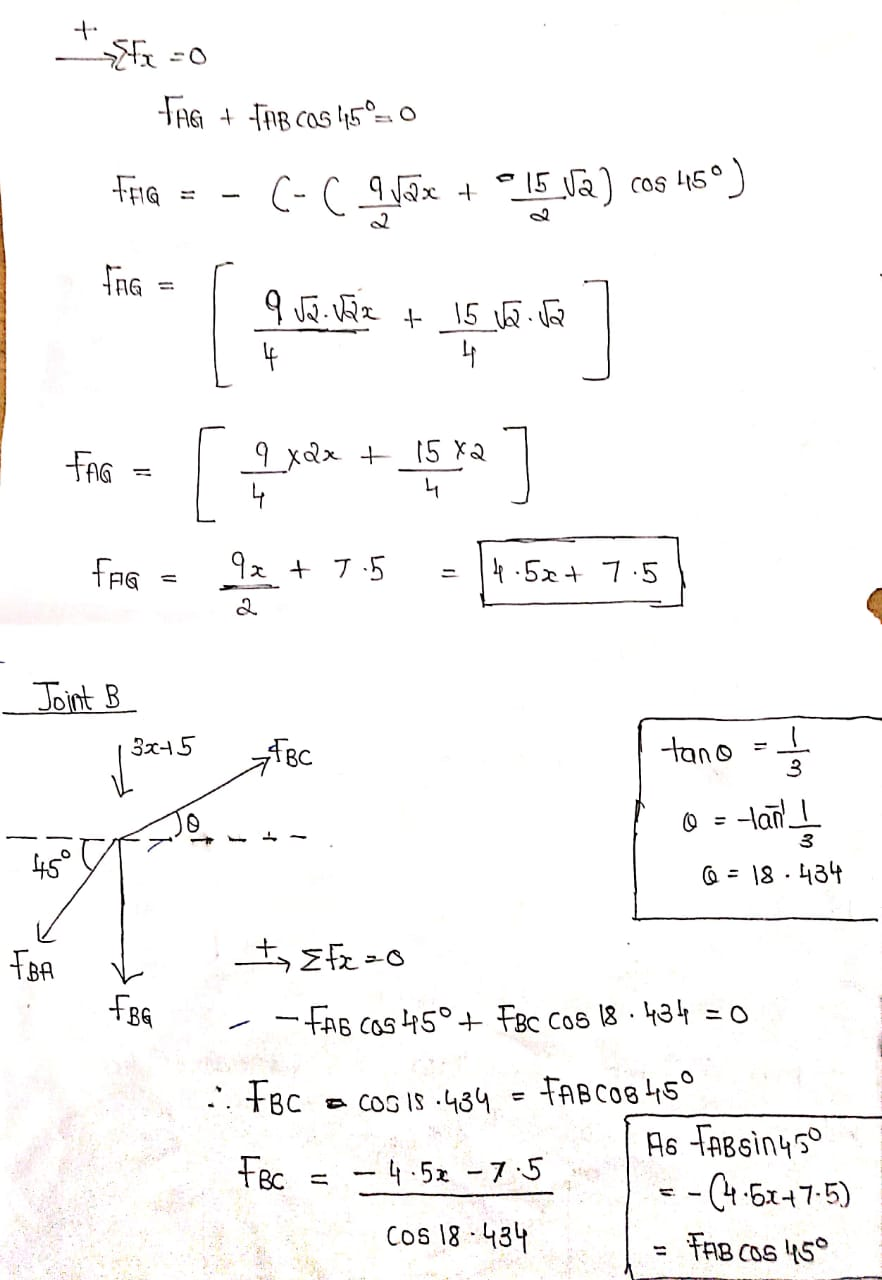 +→ ΣFx = 0
FAG + FAB cos 45° = 0
FAG = - (- ( 9√2x/2 + 15√2/2 ) cos 45° )
FAG = [ 9√2.√2x/4 + 15√2.√2/4 ]
FAG = [ 9/4 x2x + 15x2/4 ]
FAG = 9x/2 + 7.5 = 4.5x + 7.5
Joint B
3x+5
FBC
θ
45°
FBA
FBG
tanθ = 1/3
θ = tan⁻¹ 1/3
θ = 18.434
+→ ΣFx = 0
- FAB cos 45° + FBC cos 18.434 = 0
∴ FBC cos 18.434 = FAB cos 45°
FBC = - 4.5x - 7.5 / cos 18.434
As FAB sin 45°
= - (4.5x+7.5)
= FAB cos 45°